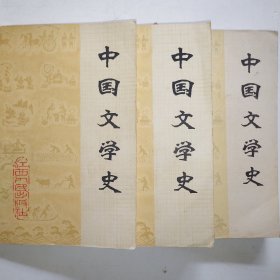 中国文学史
中国文学史
中国文学史